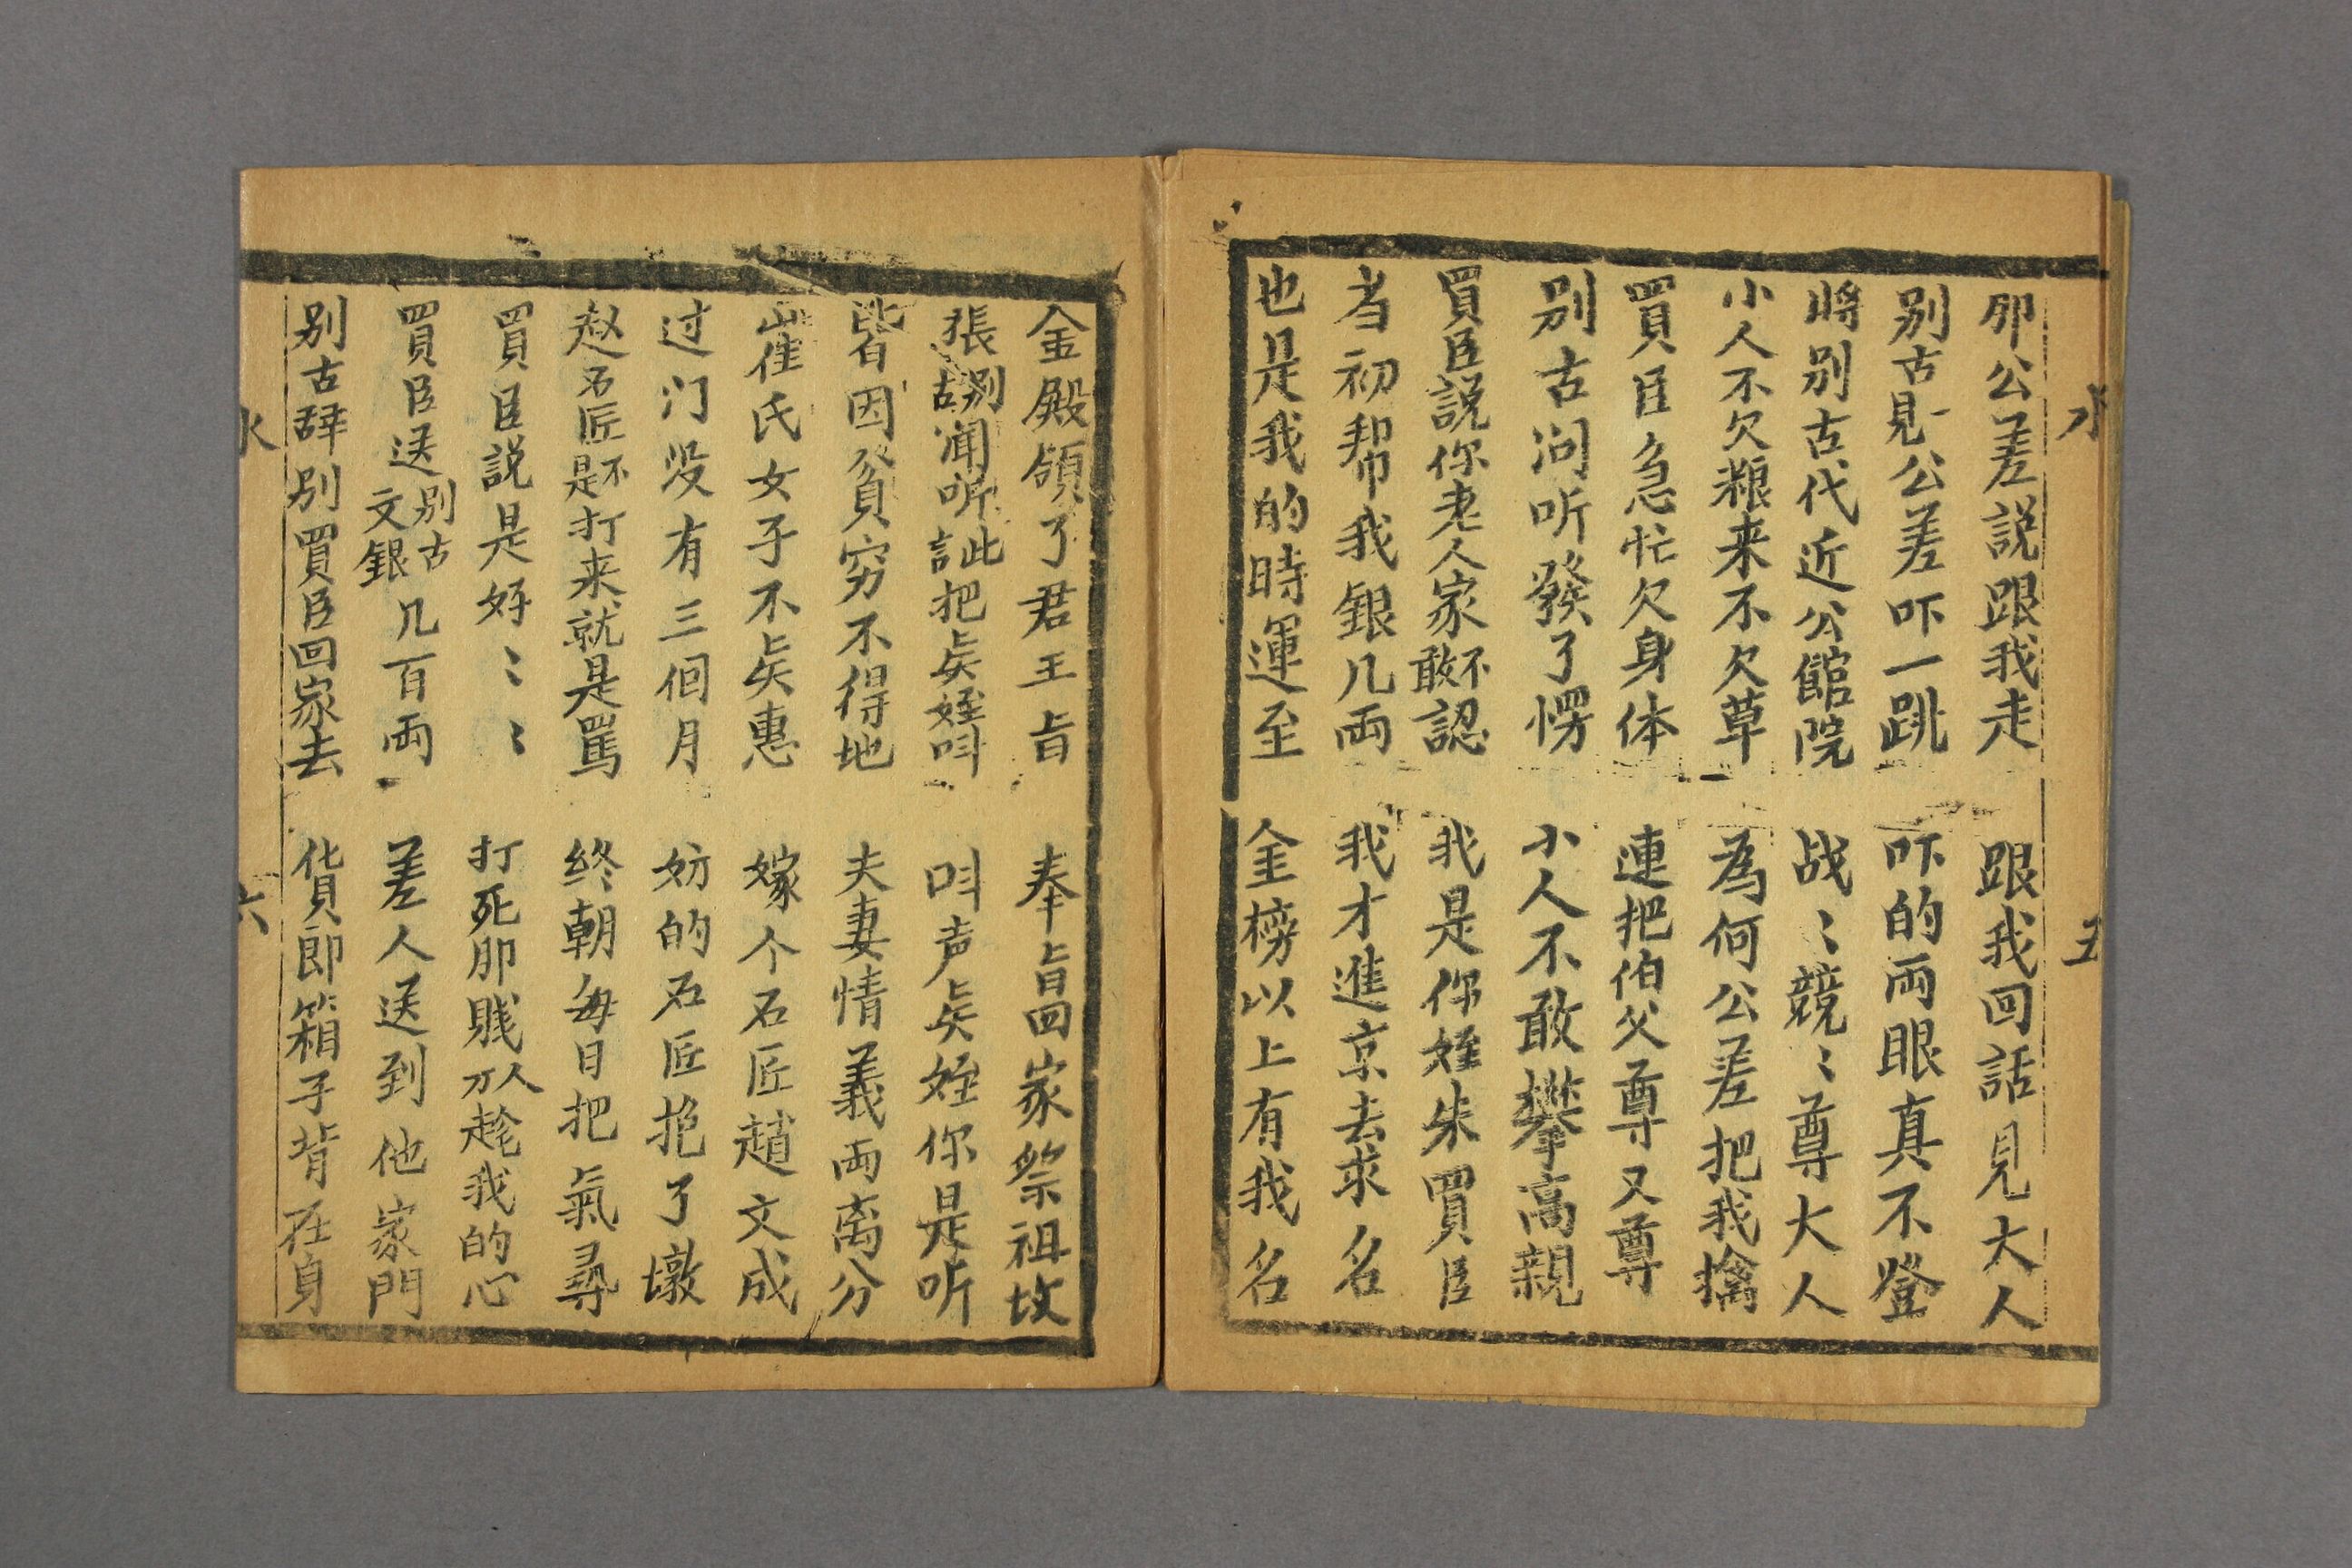 水 五
那公差説跟我走 跟我回話見大人
别古見公差吓一跳 吓的両眼真不登
將别古代近公館院 战〻競〻尊大人
小人不欠粮来不欠草 為何公差把我擒
買臣急忙欠身体 連把伯父尊又尊
别古问听發了愣 小人不敢攀高親
買臣説你老人家不敢認 我是你姪朱買臣
当初帮我銀几両 我才進京去求名
也是我的時運至 金榜以上有我名
金殿領了君王旨 奉旨回家祭祖坟
張别古闻听此言 把矣姪呌 呌声矣姪你是听
皆因貧穷不得地 夫妻情義両离分
崔氏女子不矣惠 嫁个石匠趙文成
过门没有三個月 妨的石匠抱了墩
赵石匠不是打来就是罵 終朝每日把氣尋
買臣説是好〻〻 打死那賤人才趁我的心
買臣送别古文銀几百両 差人送到他家門
别古辞别買臣回家去 貨郎箱子背在身
水 六